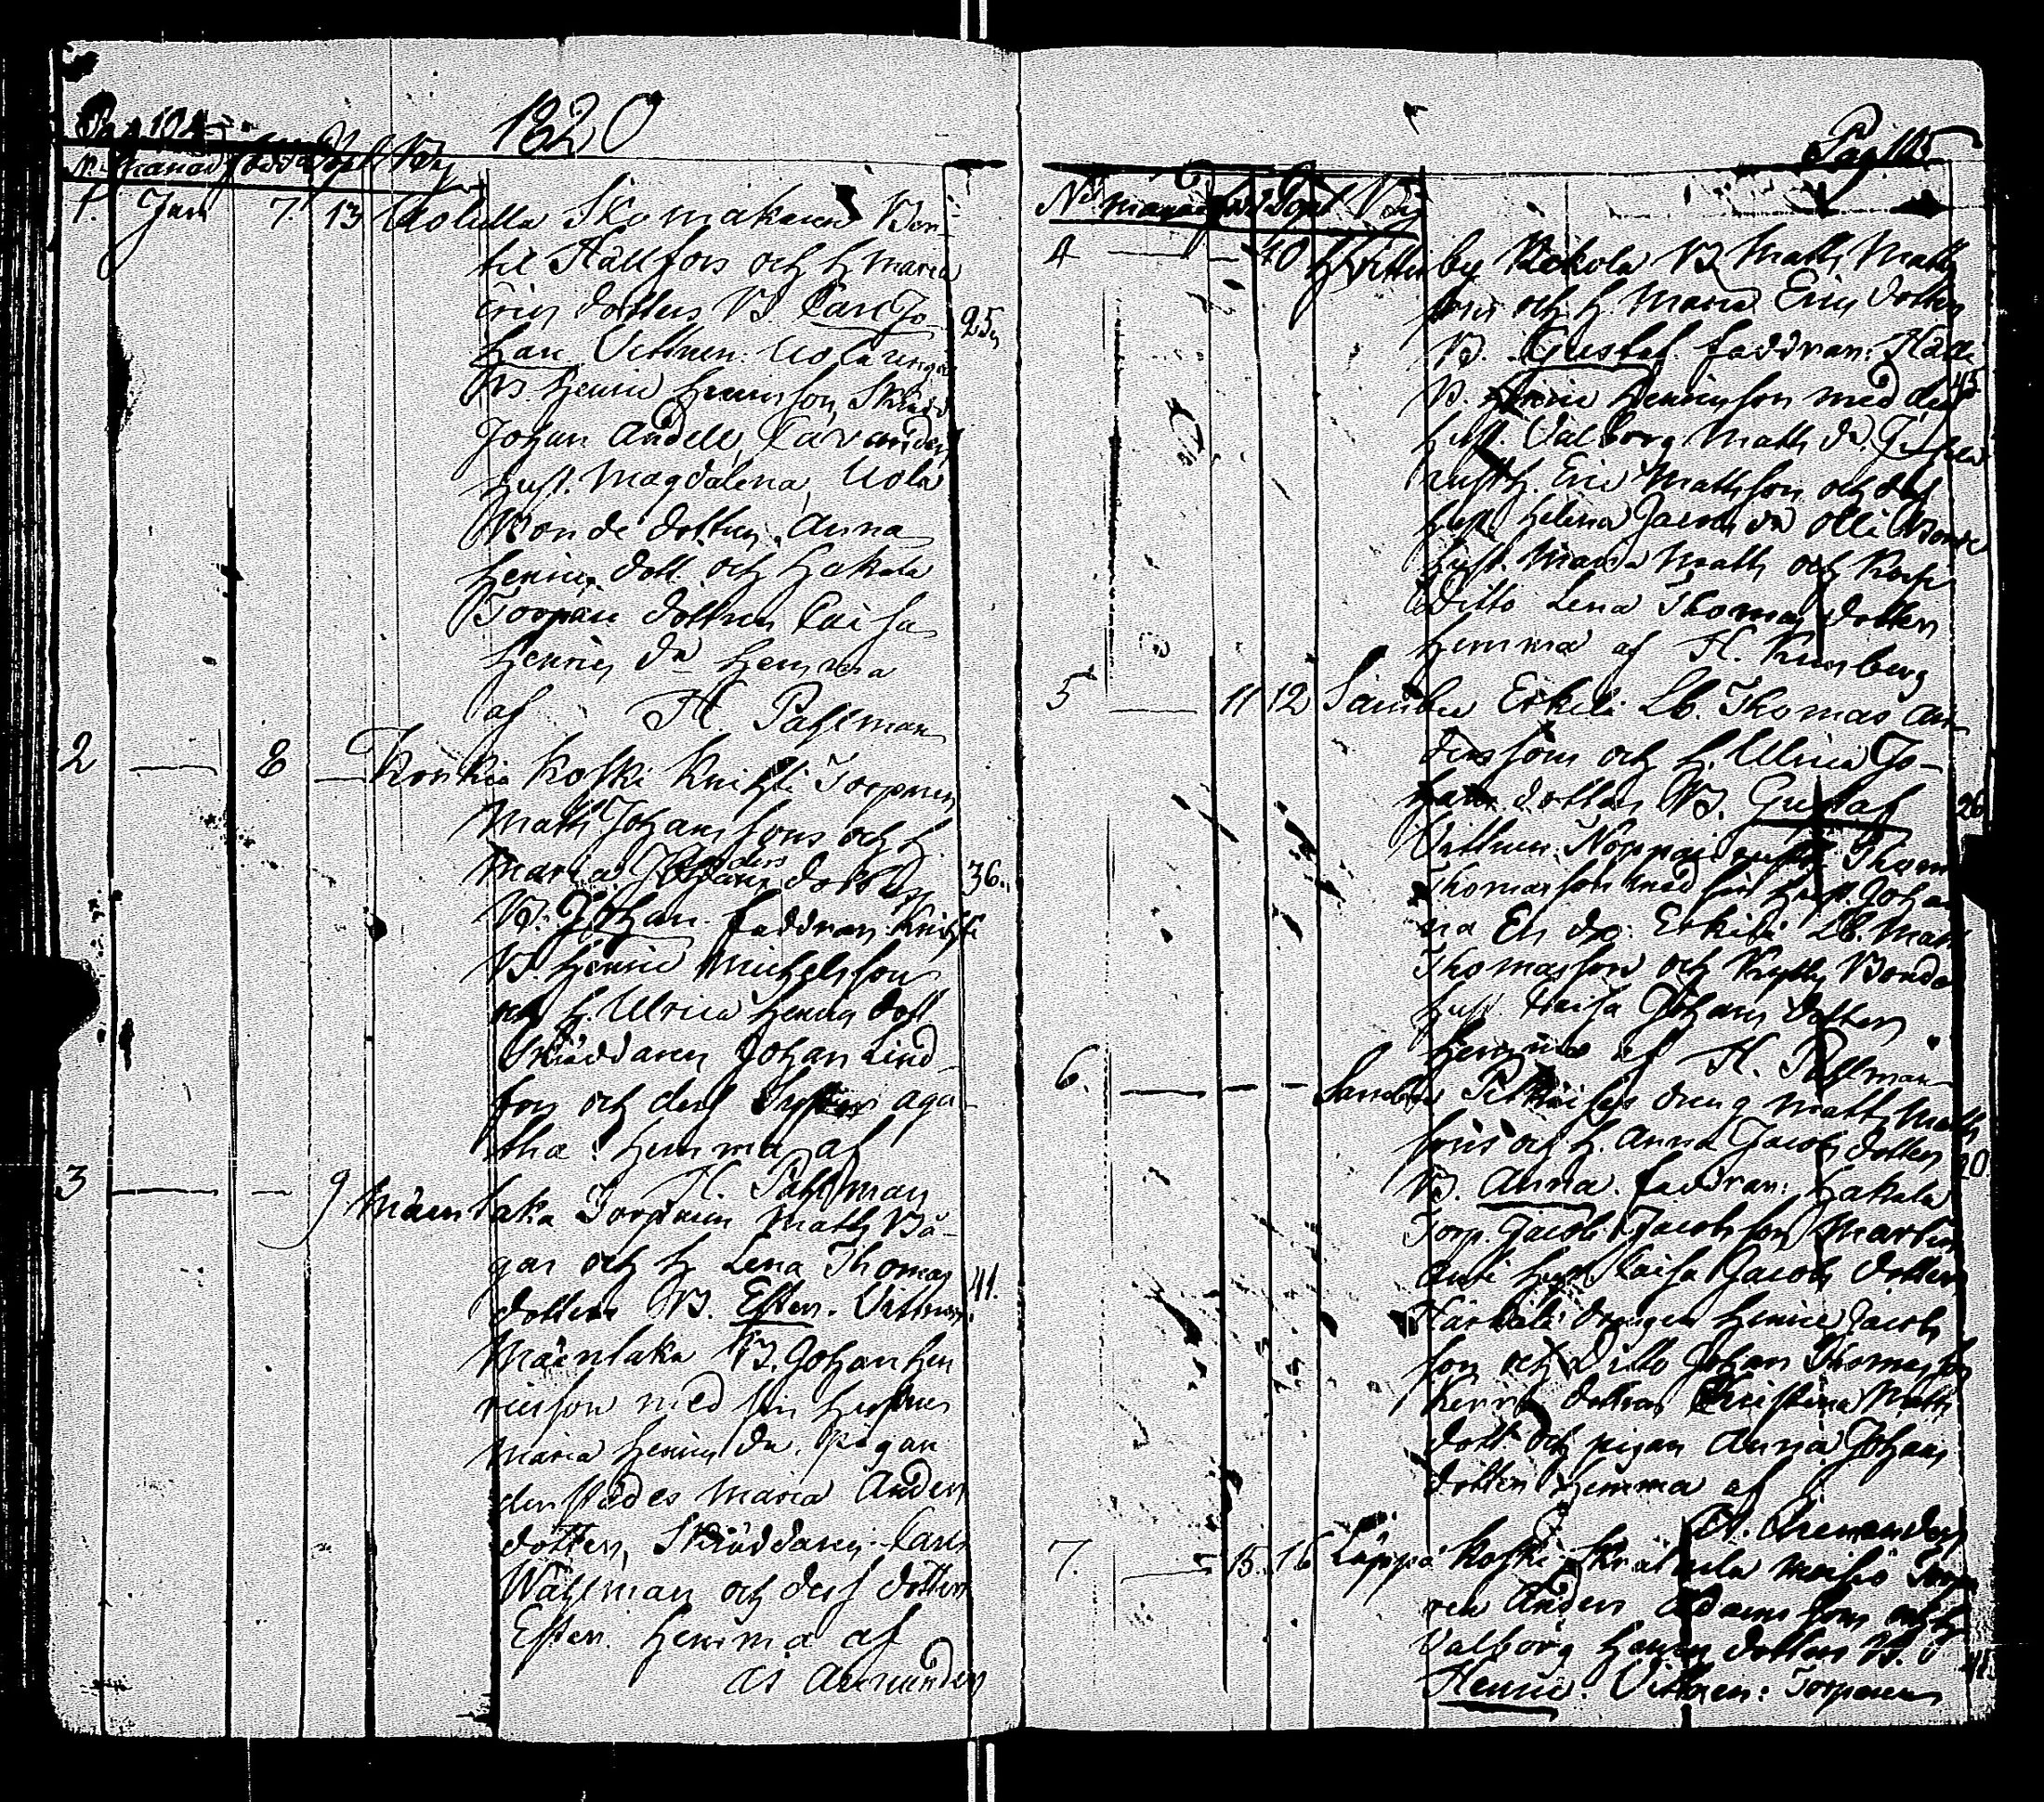 Pag 104
1820
No månad födde Döpt By
1. Jan 7. 13 Uolulla Skomakaren Ber-
til Hällfors och H Maria
Erics dotters B Carl Jo-
han Vittnen: Uola ungar 25.
B. Henric Henricsson, Skrädd
Johan Andell, Cavander
Hust. Magdalena, Uola
Bonde dottren Anna
Henrics dott. och Hakala
Torpare dottren Caisa
Henrics dr Hemma
af H Pahlman
2 — 8 — Konkia Koski Knihti Torparen
Matts Johanssons och H.
Maria Anders dotters 36.
B. Johan. faddran Knihti
B. Henric Michelsson
och H. Ulrica Henrics dott
Skräddaren Johan Lind-
fors och dess Syster Aga-
tha. Hemma af
H. Pahlman
3 — — 9 Mäenlaka Torparen Matts Bå-
gar och H Lena Thomas
dotters B. Ester. Vittnen 41.
Mäenlaka B. Johan Hen
ricsson med sin Hustru
Maria Henrics dr. Pigan
derstädes Maria Anders
dotter, Skräddaren Carl
Wahlman och dess dotter
Ester. Hemma af
Pag 105
No månad född Döpt By
4 — — 10 Hvittisby Kokola B Matts Matts
sons och H. Maria Erics dotters
B. Gustaf. faddran:
B. Henricsson med dess 45
hust. Valborg Matts dr.
rusth. Eric Mattsson och dess
hust. Helena Jacobs dr Olli Bonde
hust. Maria Matts och
ditto Lena Thomas dotter
Hemma af H.
5 — 11 12 Sambu Erkilä Lb. Thomas An
derssons och H. Ulrica Jo-
hans dotters B. Gustaf 26
Vittnen: rusth. Thom
Thomasson med sin Hust. Johan
na dr. Erkilä Lb. Matts
Thomasson och Bonde
hust. Caisa Johans dotter
Hemma af H. Pahlman
6. — — — Sambu dreng Matts Matts
sons och H. Anna Jacobs dotters 20
B. Anna. faddran: Hakala
Torp. Jacob Jacobsson Martin
Antti Hust Caisa Jacobs dotter
drengen Henric Jacobs
son och ditto Johan Thomasson
dottren Christina Matts
dott. och pigan Anna Johans
dotter Hemma af
7. — 15. 16 Loppo Koski Torpa
ren Anders Adamssons och H
Valborg Henrics dotters B. 41
Henric. Vittnen: Torparen